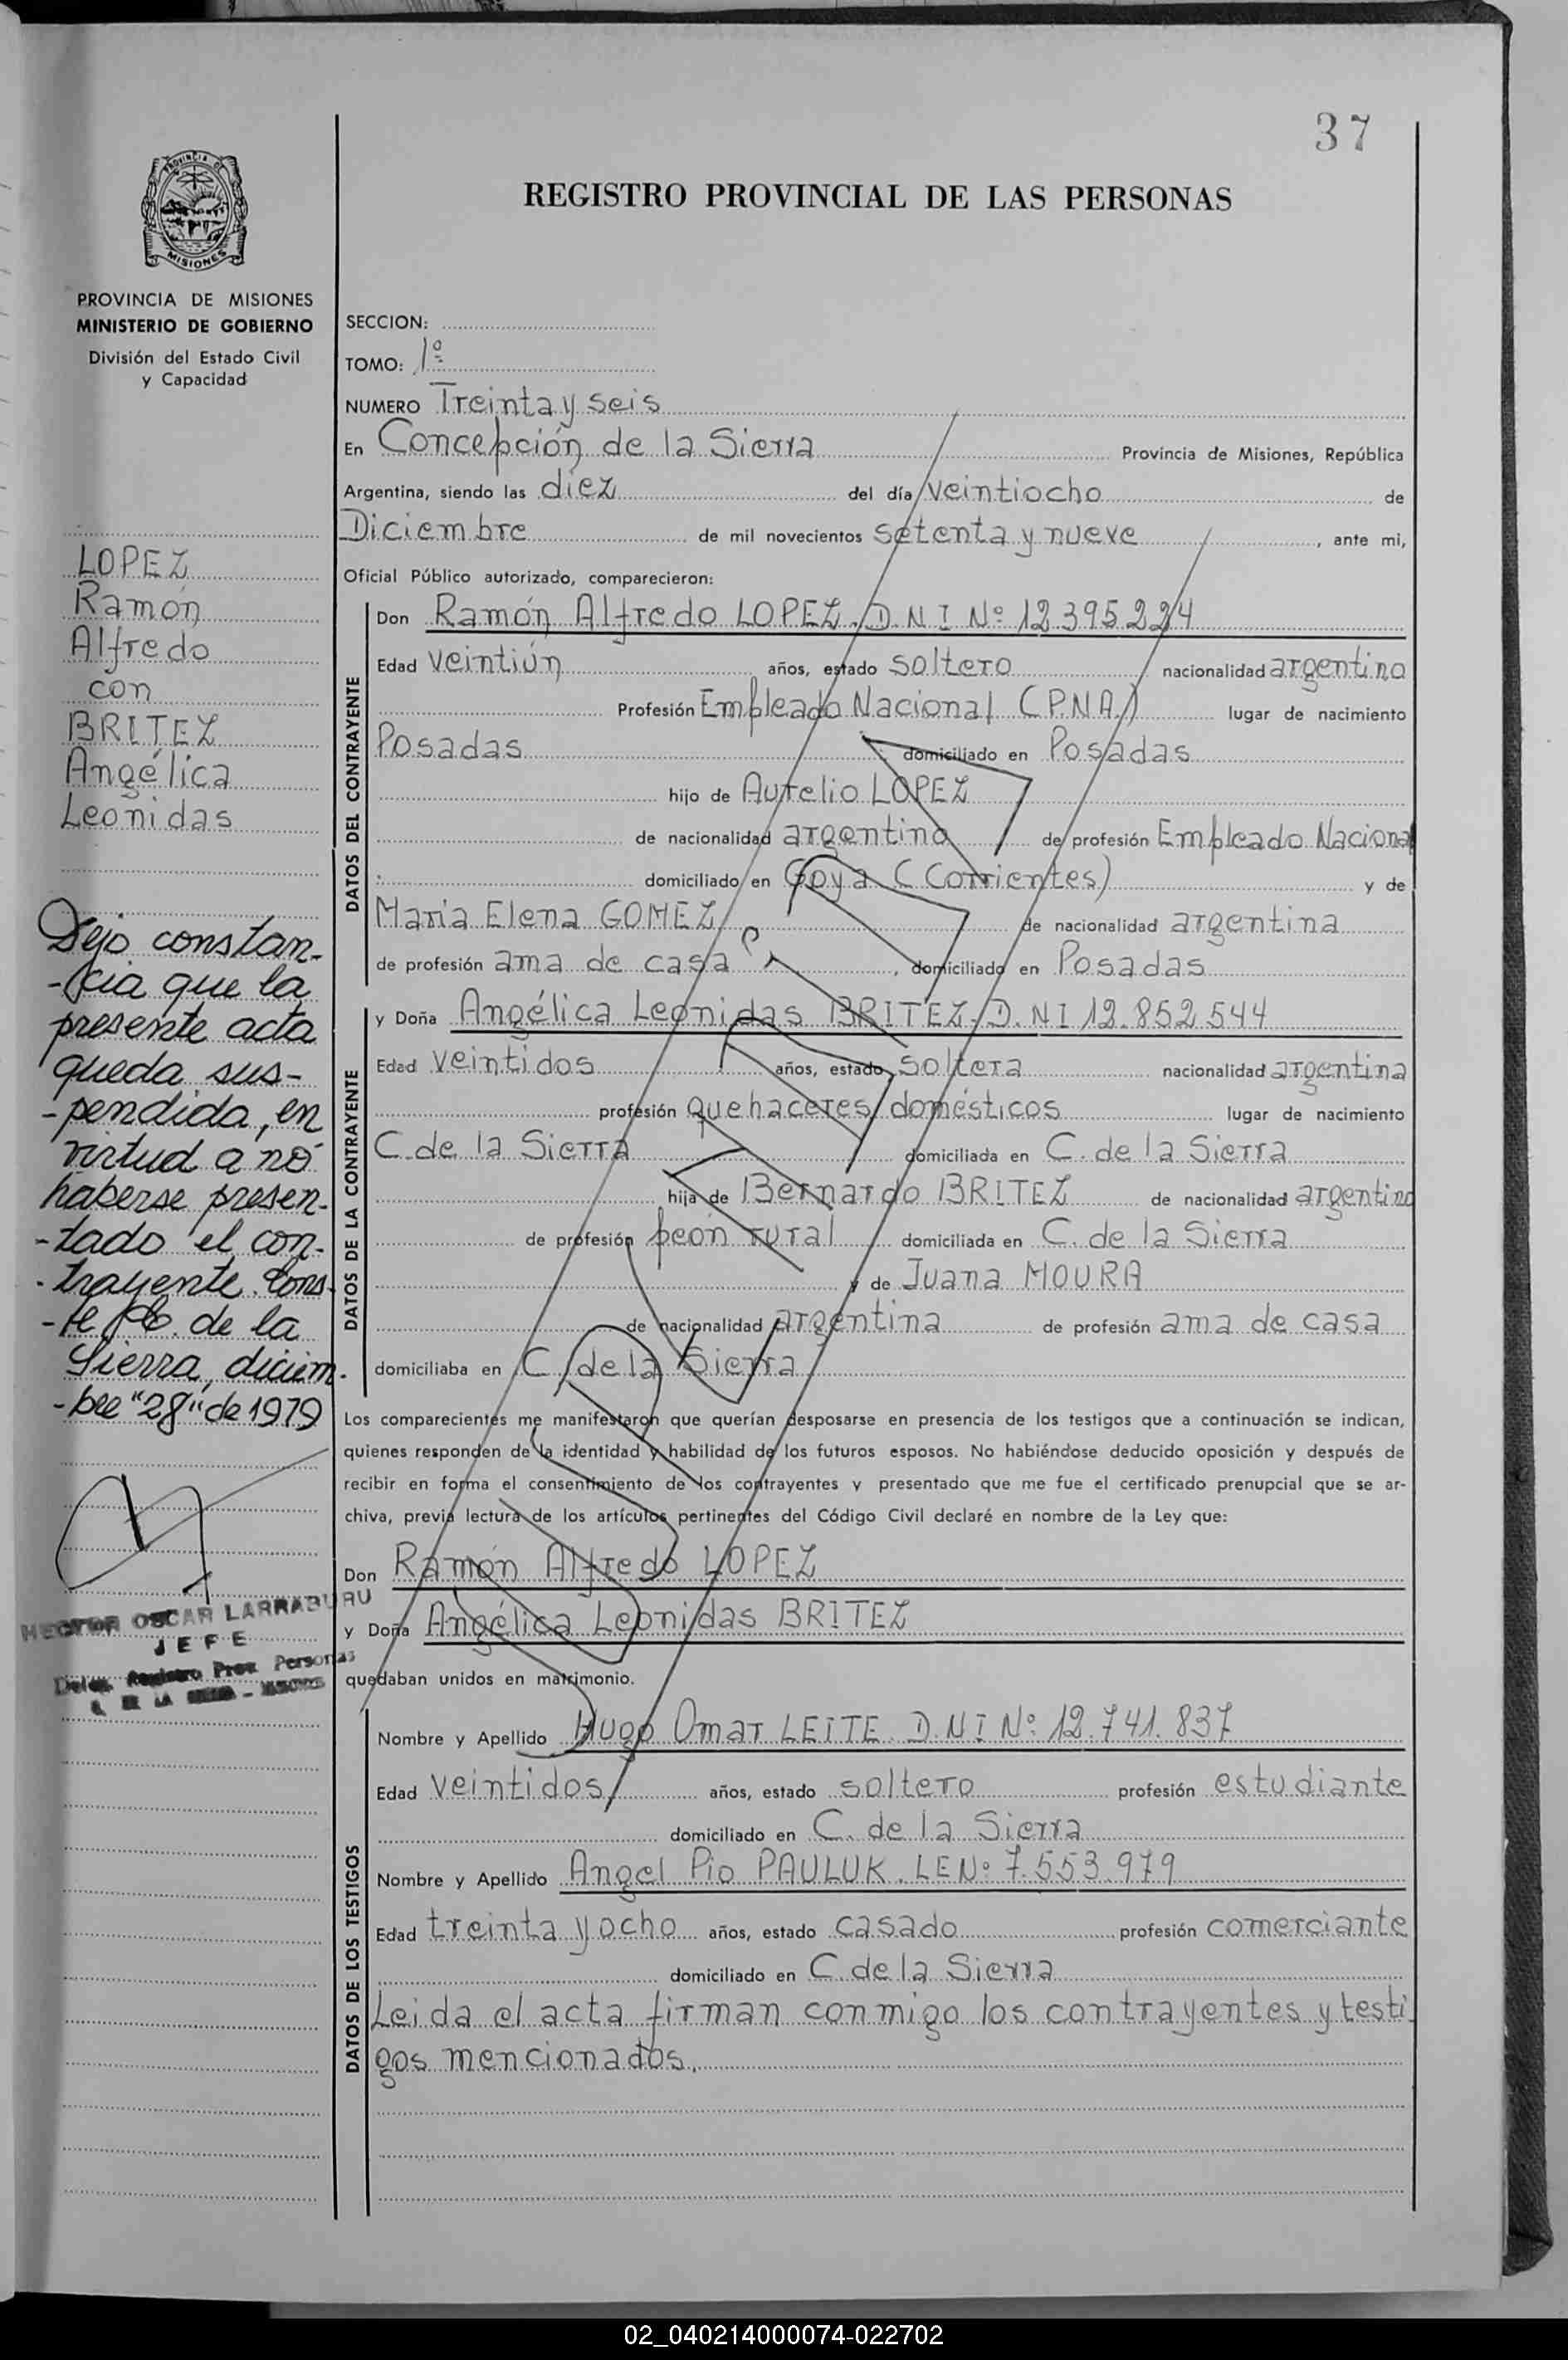 37
PROVINCIA DE
MISIONES
REGISTRO PROVINCIAL DE LAS PERSONAS
PROVINCIA DE MISIONES
MINISTERIO DE GOBIERNO
División del Estado Civil
y Capacidad
LOPEZ
Ramón
Alfredo
con
BRITEZ
Angélica
Leonidas
Dejo constan-
-cia que la
presente acta
queda sus-
-pendida, en
virtud a no
haberse presen-
-tado el con-
-trayente. Cons-
-te de la
Sierra, diciem-
-bre "28" de 1979
HECTOR OSCAR LARRABURU
JEFE
Deleg. Registro Prov. Personas
SECCION:
TOMO: 1º
NUMERO Treinta y seis
En Concepción de la Sierra Provincia de Misiones, República
Argentina, siendo las diez del día veintiocho de
Diciembre de mil novecientos setenta y nueve, ante mi,
Oficial Público autorizado, comparecieron:
DATOS DEL CONTRAYENTE
Don Ramón Alfredo LOPEZ. D.N I Nº 12.395.224
Edad Veintiún años, estado soltero nacionalidad argentino
Profesión Empleado Nacional (P.N.A.) lugar de nacimiento
Posadas domiciliado en Posadas
hijo de Aurelio LOPEZ
de nacionalidad argentino de profesión Empleado Nacional
domiciliado en Goya (Corrientes) y de
Maria Elena GOMEZ de nacionalidad argentina
de profesión ama de casa, domiciliado en Posadas
DATOS DE LA CONTRAYENTE
y Doña Angélica Leonidas BRITEZ. D.N I 12.852.544
Edad veintidos años, estado soltera nacionalidad argentina
profesión quehaceres domésticos lugar de nacimiento
C. de la Sierra domiciliada en C. de la Sierra
hija de Bernardo BRITEZ de nacionalidad argentino
de profesión peón rural domiciliada en C. de la Sierra
y de Juana MOURA
de nacionalidad argentina de profesión ama de casa
domiciliaba en C. de la Sierra
SUSPENDIDA
Los comparecientes me manifestaron que querían desposarse en presencia de los testigos que a continuación se indican,
quienes responden de la identidad y habilidad de los futuros esposos. No habiéndose deducido oposición y después de
recibir en forma el consentimiento de los contrayentes y presentado que me fue el certificado prenupcial que se ar-
chiva, previa lectura de los artículos pertinentes del Código Civil declaré en nombre de la Ley que:
Don Ramón Alfredo LOPEZ
y Doña Angélica Leonidas BRITEZ
quedaban unidos en matrimonio.
DATOS DE LOS TESTIGOS
Nombre y Apellido Hugo Omar LEITE. D.N I Nº 12.741.837
Edad veintidos años, estado soltero profesión estudiante
domiciliado en C. de la Sierra
Nombre y Apellido Angel Pio PAULUK. L E Nº 7.553.979
Edad treinta y ocho años, estado casado profesión comerciante
domiciliado en C. de la Sierra
Leida el acta firman conmigo los contrayentes y testi-
gos mencionados.
02_040214000074-022702